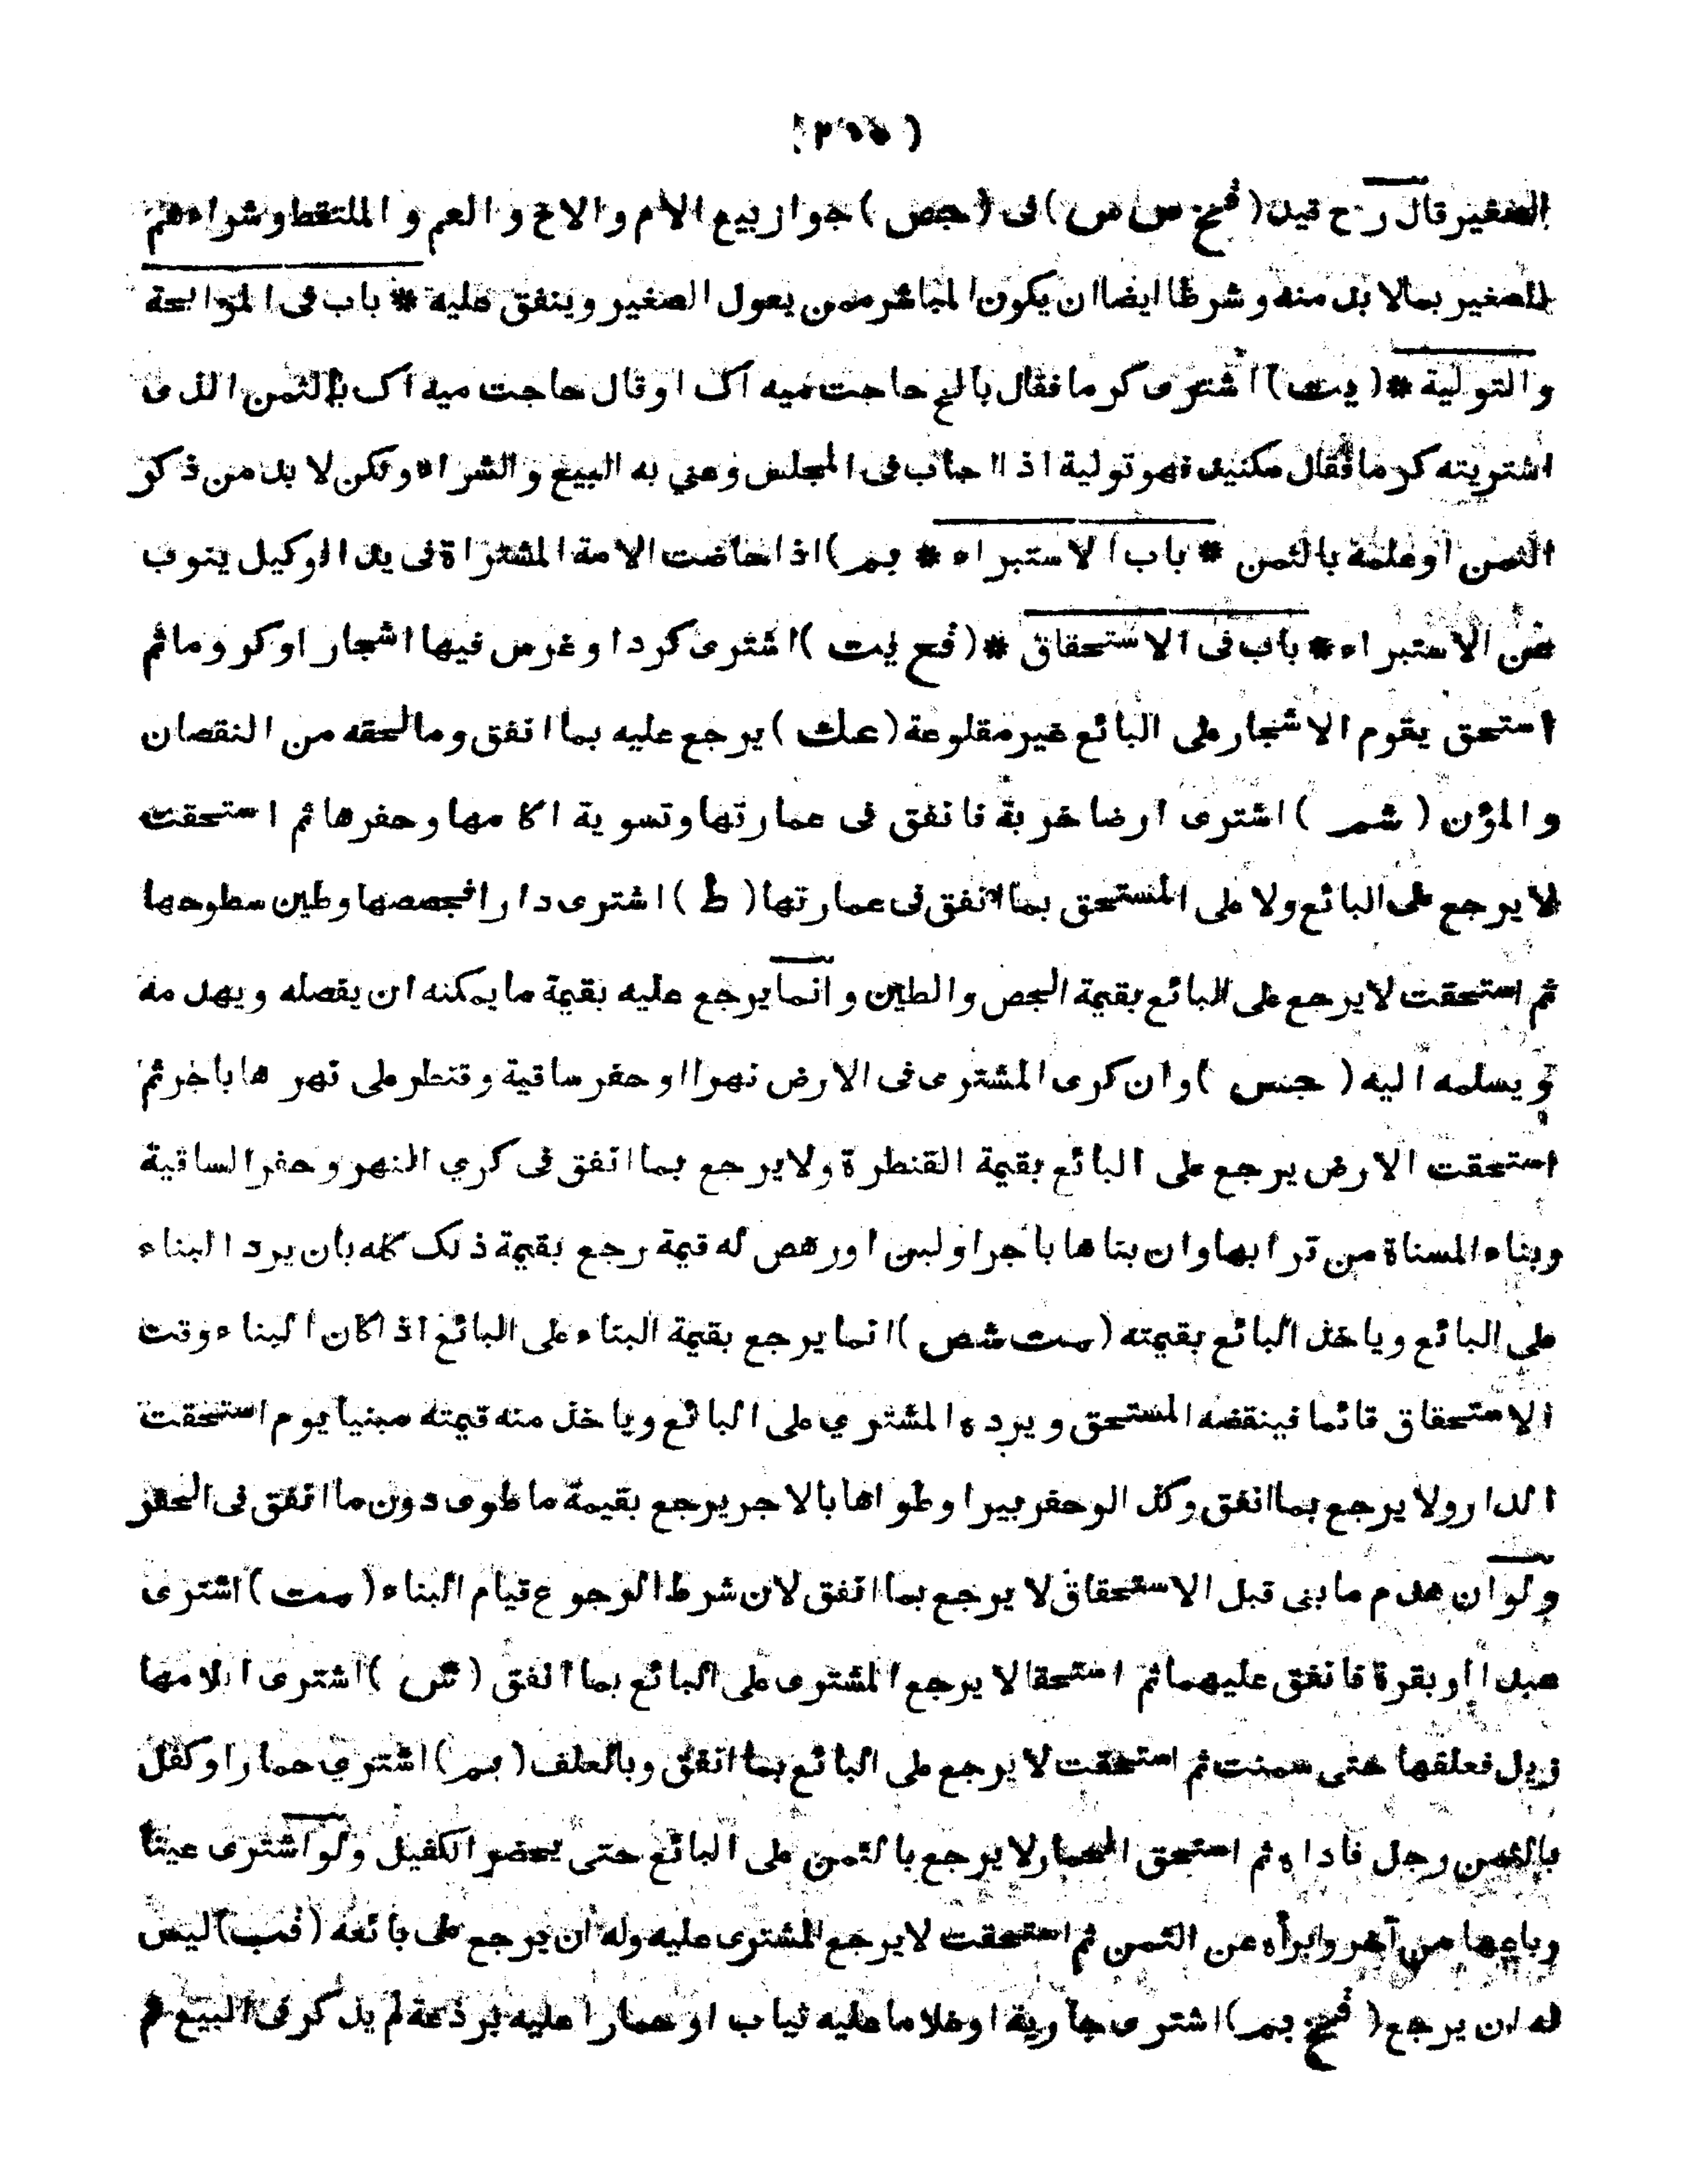 الصغير قال رح قيد ( فخ س ص ) فى ( جص ) جواز بيع الام والاخ والعم والملتقط وشراءهم
للصغير بمالا بد منه وشرطا ايضا ان يكون المباشر ممن يعول الصغير وينفق عليه * باب فى المرابحة
والتولية * ( يت ) اشترى كرما فقال بائع حاجت ميه اك اوقال حاجت ميه اك بالثمن الذى
اشتريته كرما فقال مكنيد فهو تولية اذا اجاب فى المجلس وعني به البيع والشراء ولكن لا بد من ذكر
الثمن او علمه بالثمن * باب الاستبراء * بم ) اذا حاضت الامة المشتراة فى يد الوكيل ينوب
عن الاستبراء * باب فى الاستحقاق * ( فع يت ) اشترى كردا وغرس فيها اشجار اوكروما ثم
استحق يقوم الاشجار على البائع غير مقلوعة ( عك ) يرجع عليه بما انفق وما لحقه من النقصان
والمؤن ( شم ) اشترى ارضا خربة فانفق فى عمارتها وتسوية اكامها وحفرها ثم استحقت
لا يرجع على البائع ولا على المستحق بما انفق فى عمارتها ( ط ) اشترى دارا فجصصها وطين سطوحها
ثم استحقت لا يرجع على البائع بقيمة الجص والطين وانما يرجع عليه بقيمة ما يمكنه ان يفصله ويهدمه
ويسلمه اليه ( جنس ) وان كرى المشترى فى الارض نهرا او حفر ساقية وقنطر على نهرها باجر ثم
استحقت الارض يرجع على البائع بقيمة القنطرة ولا يرجع بما انفق فى كري النهر وحفر الساقية
وبناء المسناة من ترابها وان بناها باجر او لبن اورهص له قيمة رجع بقيمة ذلك كله بان يرد البناء
على البائع وياخذ البائع بقيمته ( مت شص ) انما يرجع بقيمة البناء على البائع اذا كان البناء وقت
الاستحقاق قائما فينقضه المستحق ويرده المشتري على البائع وياخذ منه قيمته مبنيا يوم استحقت
الدار ولا يرجع بما انفق وكذا لو حفر بيرا وطواها بالاجر يرجع بقيمة ما طوى دون ما انفق فى الحفر
ولو ان هدم ما بنى قبل الاستحقاق لا يرجع بما انفق لان شرط الرجوع قيام البناء ( مت ) اشترى
عبدا او بقرة فانفق عليهما ثم استحقا لا يرجع المشترى على البائع بما انفق ( ) اشترى ابلا مها
زيل فعلفها حتى سمنت ثم استحقت لا يرجع على البائع بما انفق وبالعلف ( بم ) اشتري حمارا وكفل
بالثمن رجل فاداه ثم استحق الحمار لا يرجع بالثمن على البائع حتى يحضر الكفيل ولو اشترى عينا
وباعها من آخر وابرأه عن الثمن ثم استحقت لا يرجع المشترى عليه وله ان يرجع على بائعه ( فب ) ليس
له ان يرجع ( فخ بم ) اشترى جارية او غلاما عليه ثياب او حمارا عليه برذعة لم يذكر فى البيع ثم